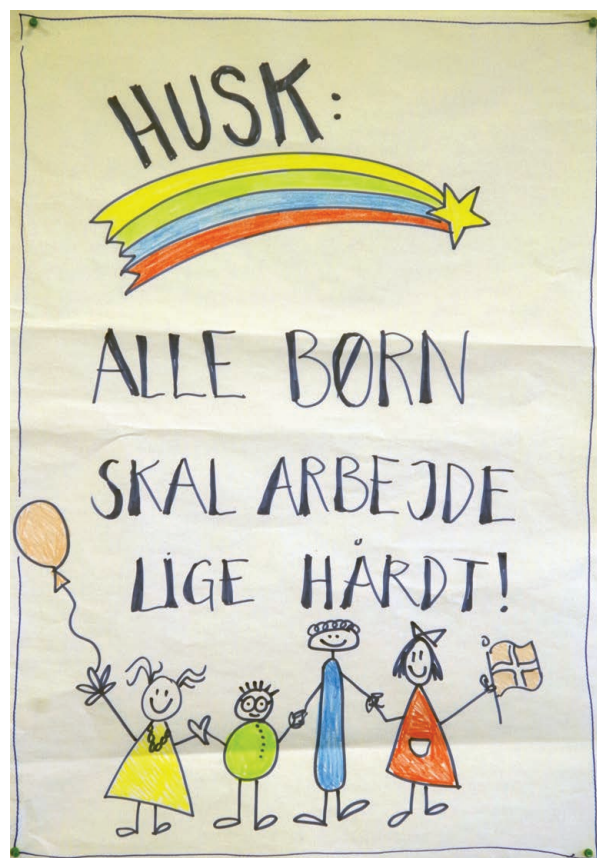 HUSK:
ALLE BØRN
SKAL ARBEJDE
LIGE HÅRDT!